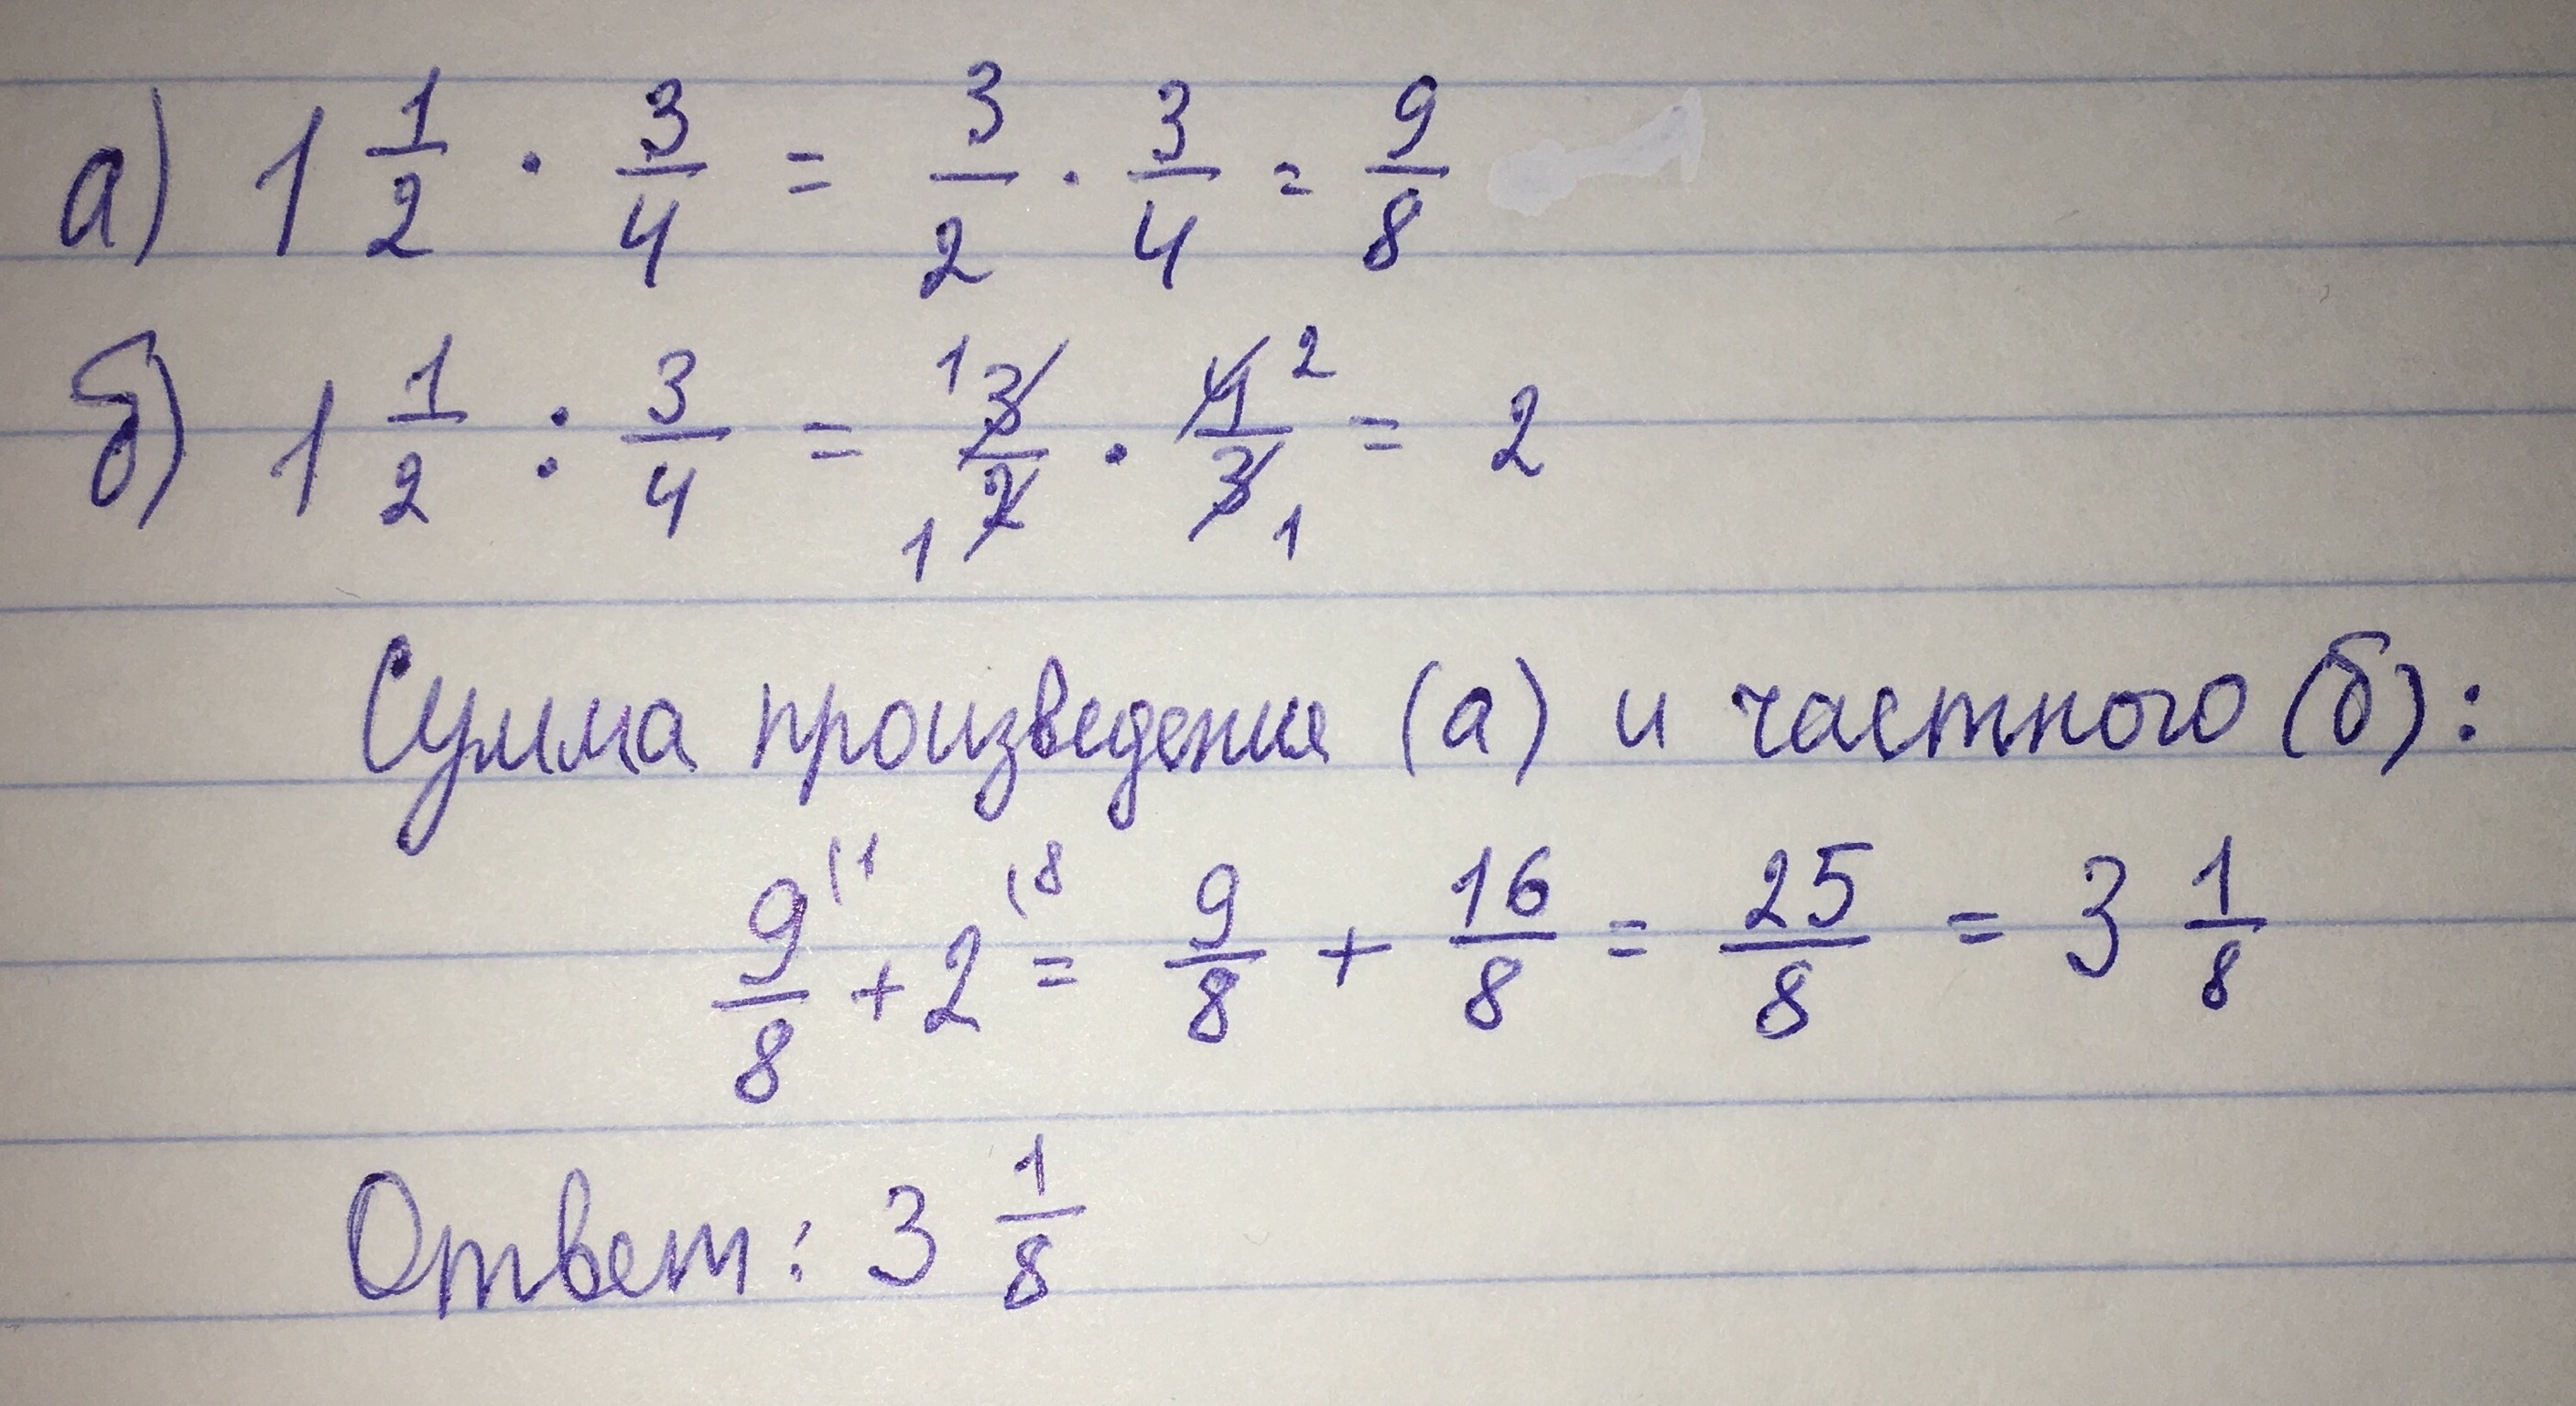 а) 1 1/2 · 3/4 = 3/2 · 3/4 = 9/8
б) 1 1/2 : 3/4 = 3/2 · 4/3 = 2
Сумма произведения (а) и частного (б):
9/8 + 2 = 9/8 + 16/8 = 25/8 = 3 1/8
Ответ: 3 1/8